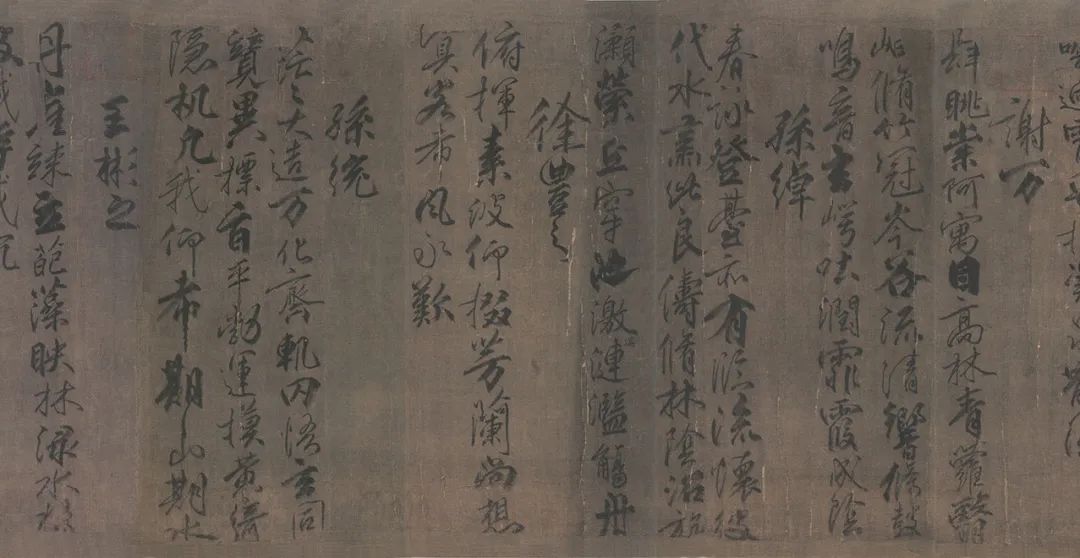 謝万
肆眺崇阿寓目高林青蘿翳
岫脩竹冠岑谷流清響條鼓
鳴音玄崿吐潤霏霞成陰
孫綽
春詠登臺亦有臨流懷彼
伐木肅此良儔脩林陰沼旋
瀨縈丘穿池激湍漣濫觴舟
徐豐之
俯揮素波仰掇芳蘭尚想
嘉客希風永歎
孫統
茫〻大造万化齊軌罔悟玄同
競異摽旨平勃運摸黃綺
隱机凡我仰希期山期水
王彬之
丹崖竦立葩藻映林渌水揚
波載浮載沉